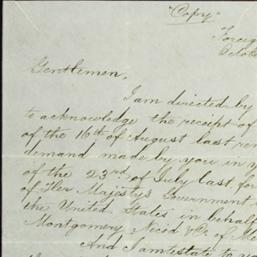 "Copy"
Foreig
Octobe
Gentlemen,
I am directed by
to acknowledge the receipt of
of the 16th of August last ren
demand made by you in y
of the 23rd of July last, for
of Her Majesty's Government
the United States in behalf
Montgomery, Nicod & Co of Me
And I am to state to yo